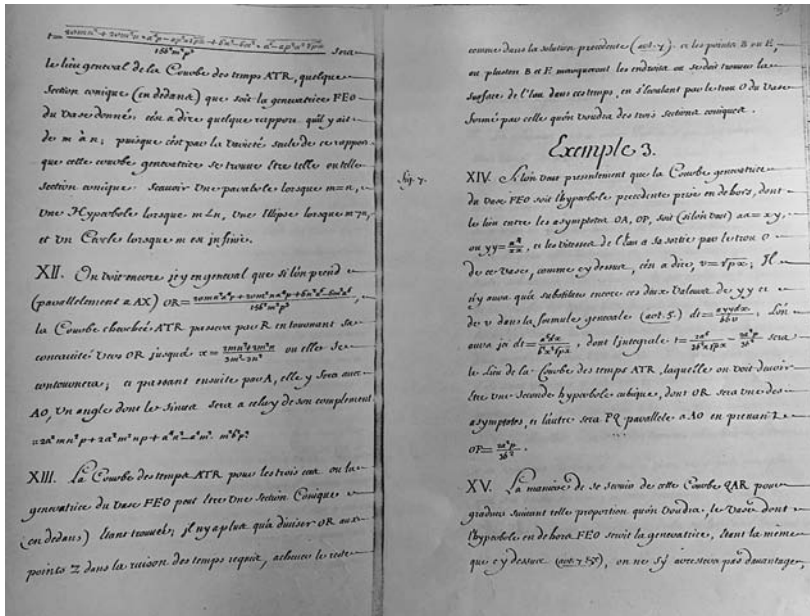 sera
le lieu general de la Courbe des temps ATR, quelque
Section conique (en dedans) que soit la generatrice FEO
du vase donné; c'en a dire quelque rapport qu'il y ait
de m à n; puisque c'en par la varieté seule de ce rapport
que cette courbe generatrice se trouve être telle ou telle
section conique. Scauoir Vne parabole lorsque m=n,
Vne Hyperbole lorsque m<n, Vne Ellipse lorsque m>n,
et Vn Cercle lorsque m est infinie.
XII. On voit encore icy en general que si l'on prend
(parallelement a AX) OR=
la Courbe cherchée ATR passera par R en tournant sa
concavité vers OR jusqu'a x= ou elle se
contournera; et passant ensuite par A, elle y sera avec
AO, Vn angle dont le sinus sera a celuy de son complement
XIII. La Courbe des temps ATR pour les trois cas ou la
generatrice du Vase FEO peut être Vne Section Conique
(en dedans) étant trouvée; il n'y a plus qu'a diviser OR aux
points Z dans la raison des temps requis, achever le reste
comme dans la solution precedente (art. 7.) et les points B ou E,
ou plustost B et E marqueront les endroits ou se doit trouver la
surface de l'Eau dans ces temps, en s'écoulant par le trou O du Vase
formé par celle qu'on voudra des trois sections coniques.
Exemple 3.
fig. 7.
XIV. Si l'on veut presentement que la Courbe generatrice
du vase FEO soit l'hyperbole precedente prise en dehors, dont
le lieu entre les asymptotes OA, OP, soit (si l'on veut) aa=xy,
ou yy=a⁴/xx, et les vitesses de l'Eau a sa sortie par le trou O
de ce vase, comme cy dessus, c'en a dire, v=√px; Il
n'y aura qu'a substituer encore ces deux Valeurs de yy et
de v dans la formule generale (art. 5.) dt=ayydx/bbv; L'on
aura ici dt= , dont l'integrale t= sera
le lieu de la Courbe des temps ATR, laquelle on voit devoir
être Vne seconde hyperbole cubique, dont OR sera Vne des
asymptotes, et l'autre sera PQ parallele a AO en prenant
OP=2a²p/3b².
XV. La maniere de se servir de cette Courbe QAR pour
graduer suivant telle proportion qu'on voudra, le Vase dont
l'hyperbole en dehors FEO seroit la generatrice, étant la même
que cy dessus , on ne s'y arrestera pas davantage,